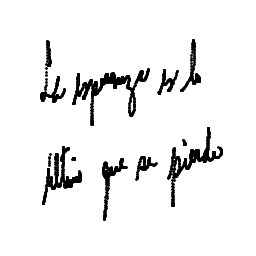 La esperanza es lo
último que se pierde